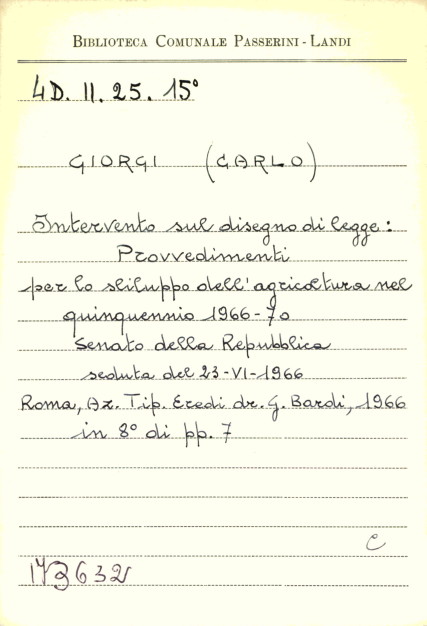 BIBLIOTECA COMUNALE PASSERINI - LANDI
4D. II. 25. 15°
GIORGI (CARLO)
Intervento sul disegno di legge:
Provvedimenti
per lo sviluppo dell'agricoltura nel
quinquennio 1966-70
Senato della Repubblica
seduta del 23-VI-1966
Roma, Az. Tip. Eredi dr. G. Bardi, 1966
in 8° di pp. 7
C
173632